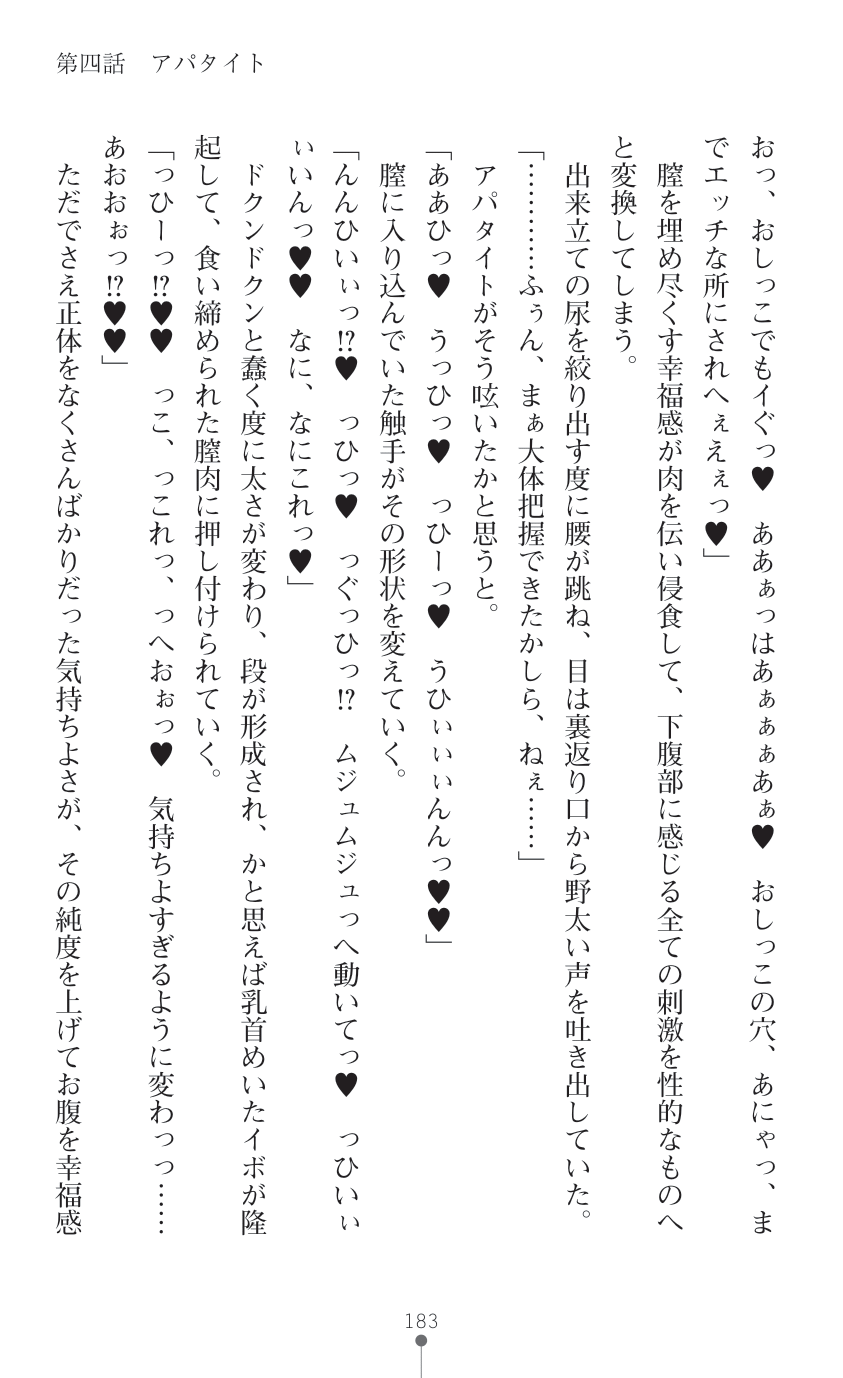 第四話　アパタイト
おっ、おしっこでもイぐっ♥　ああぁっはあぁぁぁあぁ♥　おしっこの穴、あにゃっ、ま
でエッチな所にされへぇえぇっ♥」
　膣を埋め尽くす幸福感が肉を伝い侵食して、下腹部に感じる全ての刺激を性的なものへ
と変換してしまう。
　出来立ての尿を絞り出す度に腰が跳ね、目は裏返り口から野太い声を吐き出していた。
「…………ふぅん、まぁ大体把握できたかしら、ねぇ……」
　アパタイトがそう呟いたかと思うと。
「ああひっ♥　うっひっ♥　っひーっ♥　うひぃぃぃんんっ♥♥」
　膣に入り込んでいた触手がその形状を変えていく。
「んんひいぃっ!?♥　っひっ♥　っぐっひっ!?　ムジュムジュっへ動いてっ♥　っひいぃ
ぃいんっ♥♥　なに、なにこれっ♥」
　ドクンドクンと蠢く度に太さが変わり、段が形成され、かと思えば乳首めいたイボが隆
起して、食い締められた膣肉に押し付けられていく。
「っひーっ!?♥♥　っこ、っこれっ、っへおぉっ♥　気持ちよすぎるように変わっっ……
あおおぉっ!?♥♥」
　ただでさえ正体をなくさんばかりだった気持ちよさが、その純度を上げてお腹を幸福感
183